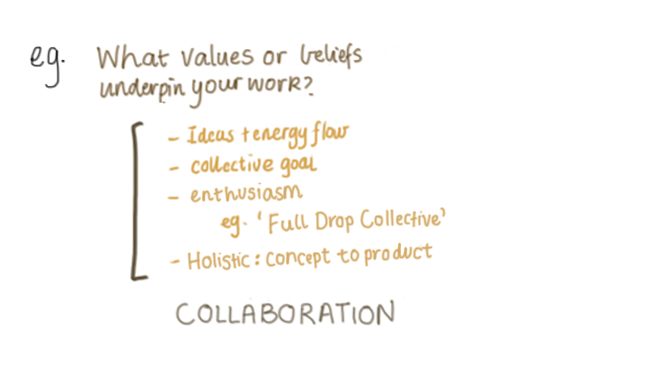 eg. What values or beliefs
underpin your work?
- Ideas + energy flow
- collective goal
- enthusiasm
eg. 'Full Drop Collective'
- Holistic: concept to product
COLLABORATION